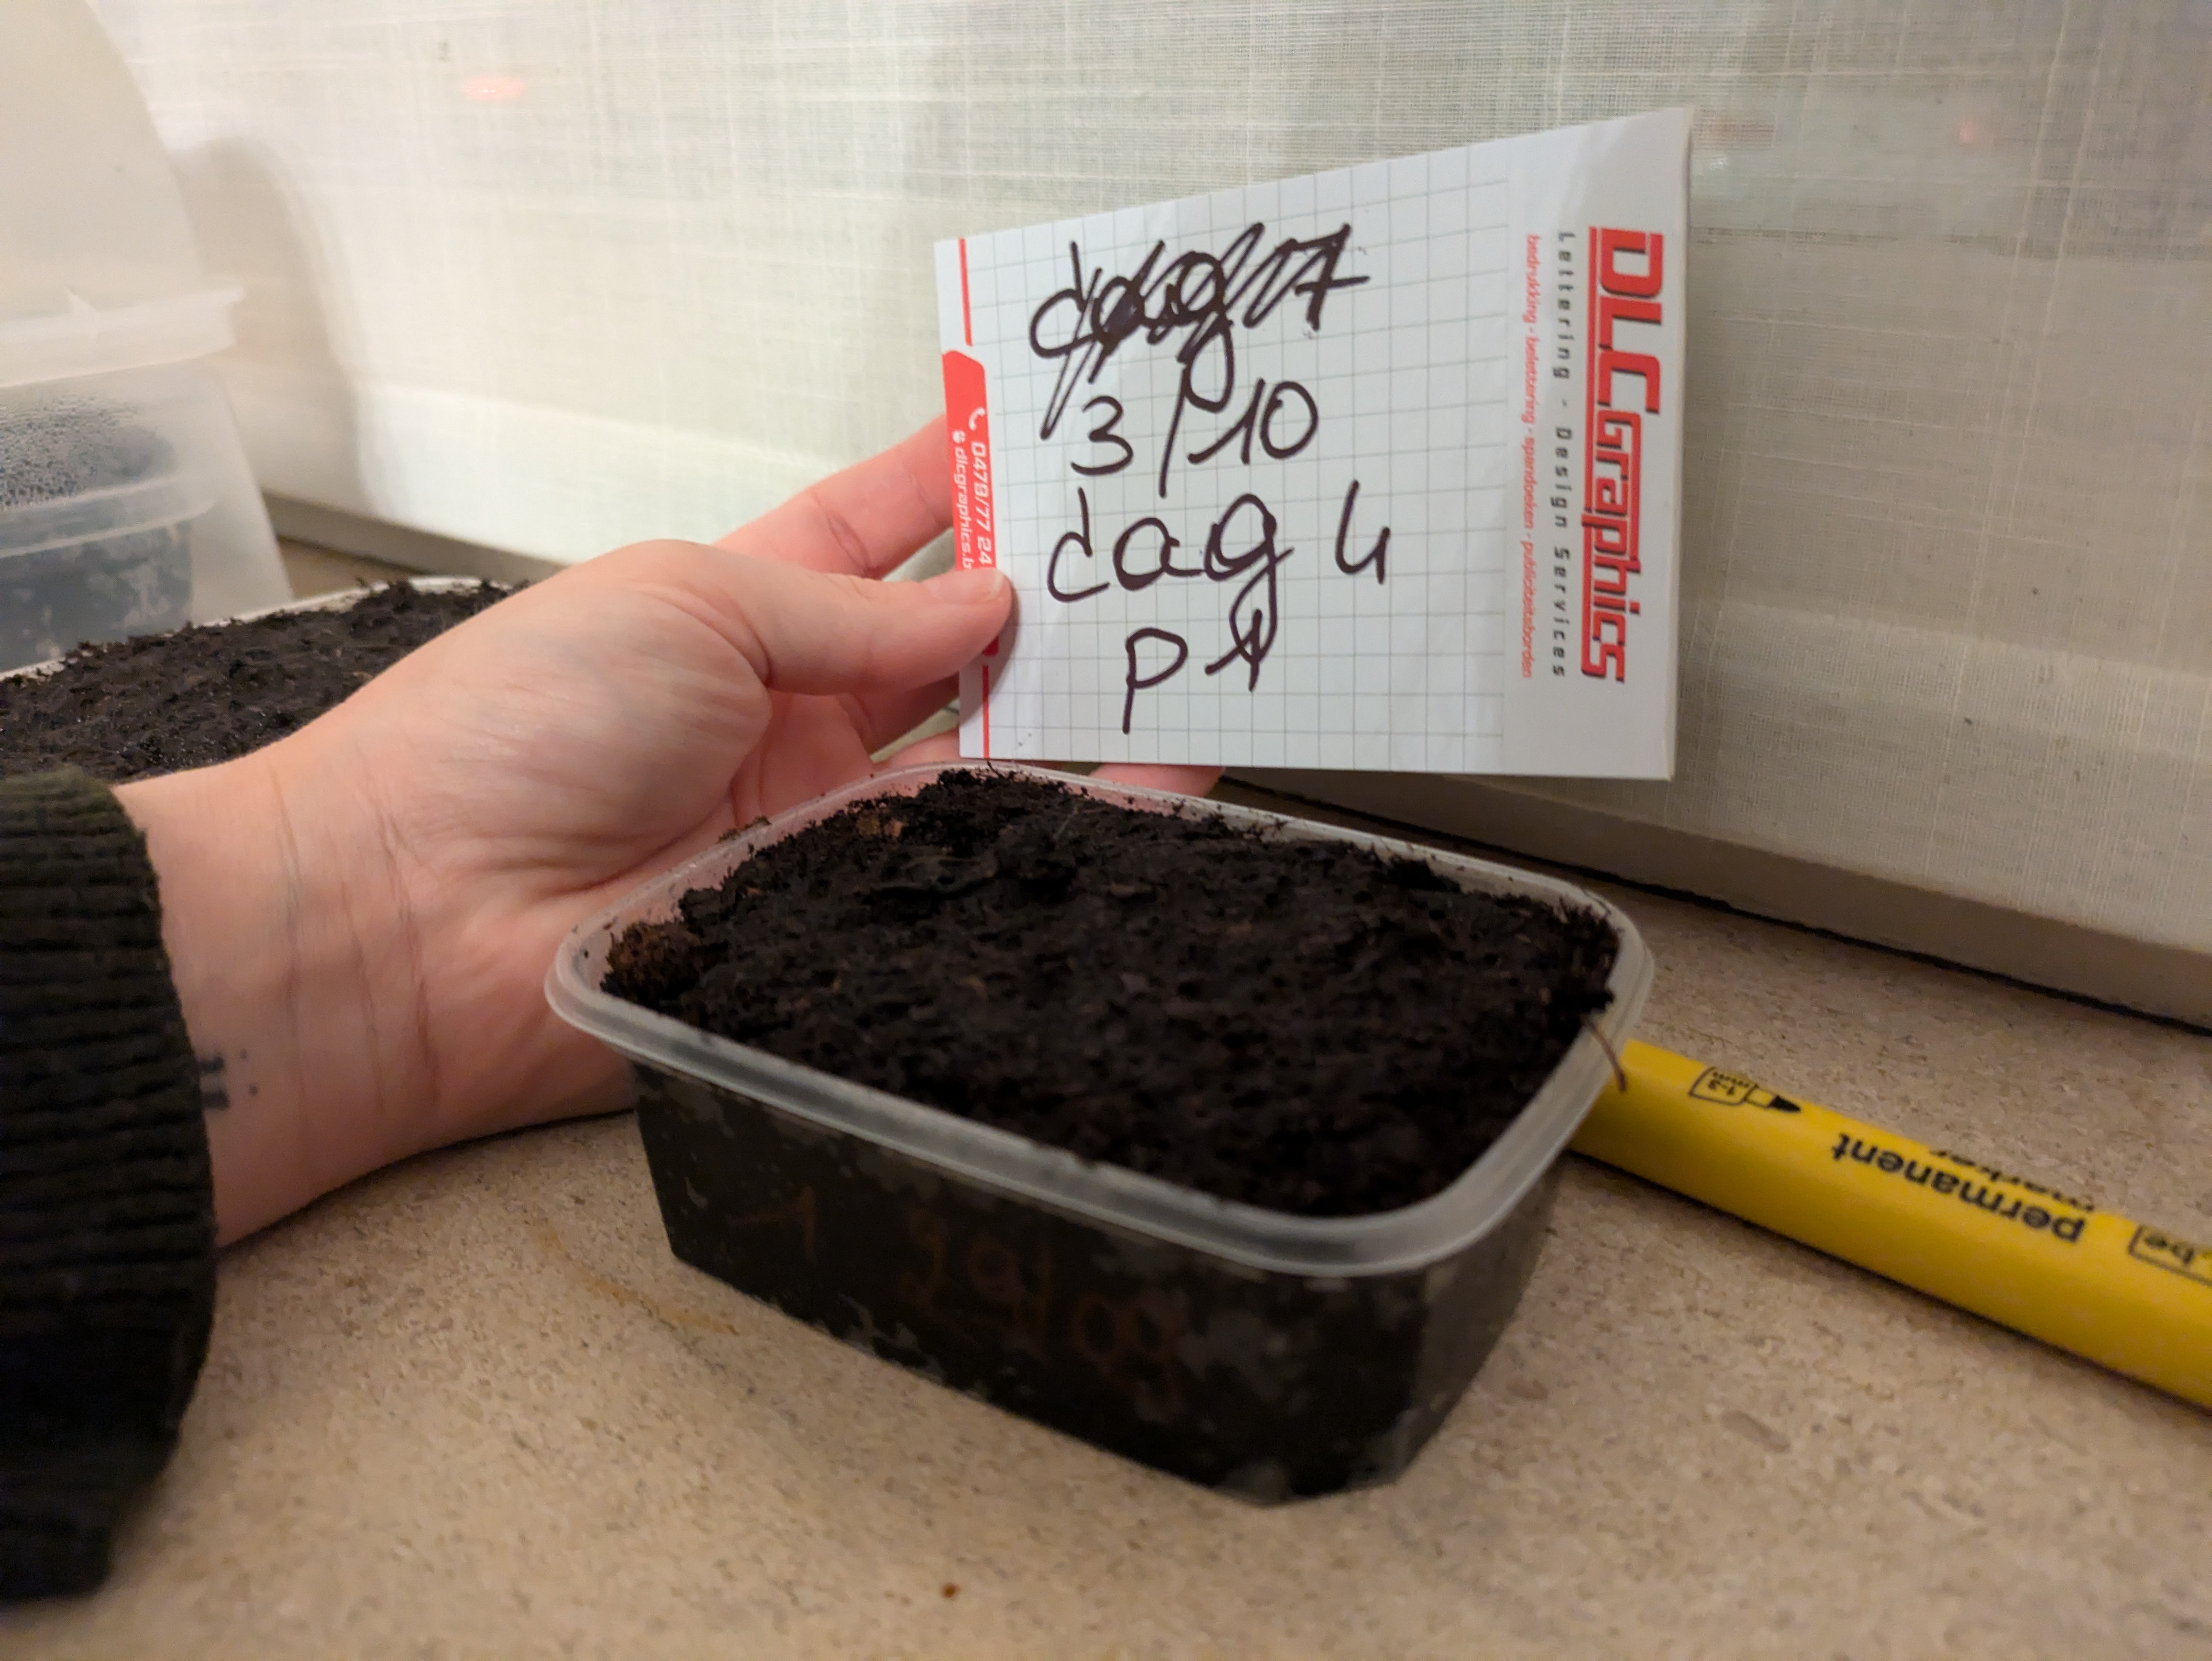 3/10
dag 4
p1
DLCGraphics
Lettering - Design Services
bedrukking - belettering - spandoeken - publiciteitsborden
0479/77 24
dlcgraphics.b
1 29/09
1-3 mm
permanent
marker
.be